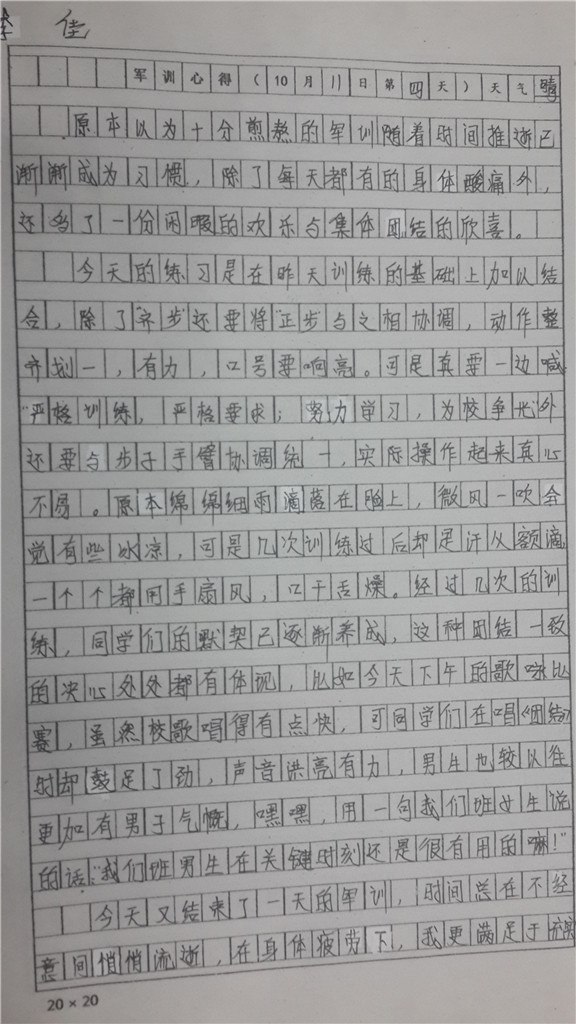 李 佳
军训心得(10月11日第四天)天气晴
原本以为十分煎熬的军训随着时间推逝已
渐渐成为习惯,除了每天都有的身体酸痛外,
还多了一份闲暇的欢乐与集体团结的欣喜。
今天的练习是在昨天训练的基础上加以结
合,除了“齐步”还要将“正步”与之相协调,动作整
齐划一,有力,口号要响亮。可是真要一边喊
“严格训练,严格要求;努力学习,为校争光”外
还要与步子手臂协调统一,实际操作起来真心
不易。原本绵绵细雨滴落在脸上,微风一吹会
觉有些冰凉,可是几次训练过后却是汗从额滴,
一个个都用手扇风,口干舌燥。经过几次的训
练,同学们的默契已逐渐养成,这种团结一致
的决心处处都有体现,比如今天下午的歌咏比
赛,虽然校歌唱得有点快,可同学们在唱《团结》
时却鼓足了劲,声音洪亮有力,男生也较以往
更加有男子气慨,嘿嘿,用一句我们班女生说
的话:“我们班男生在关键时刻还是很有用的嘛!”
今天又结束了一天的军训,时间总在不经
意间悄悄流逝,在身体疲劳下,我更满足于充实
20×20